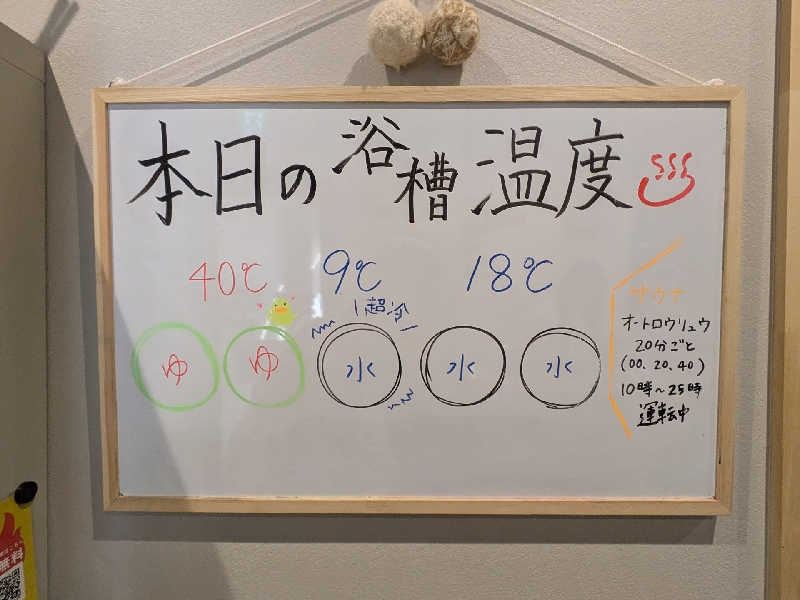 本日の浴槽温度♨
40℃ 9℃ 18℃
超冷
ゆ ゆ 水 水 水
サウナ
オートロウリュウ
20分ごと
(00、20、40)
10時〜25時
運転中
無料